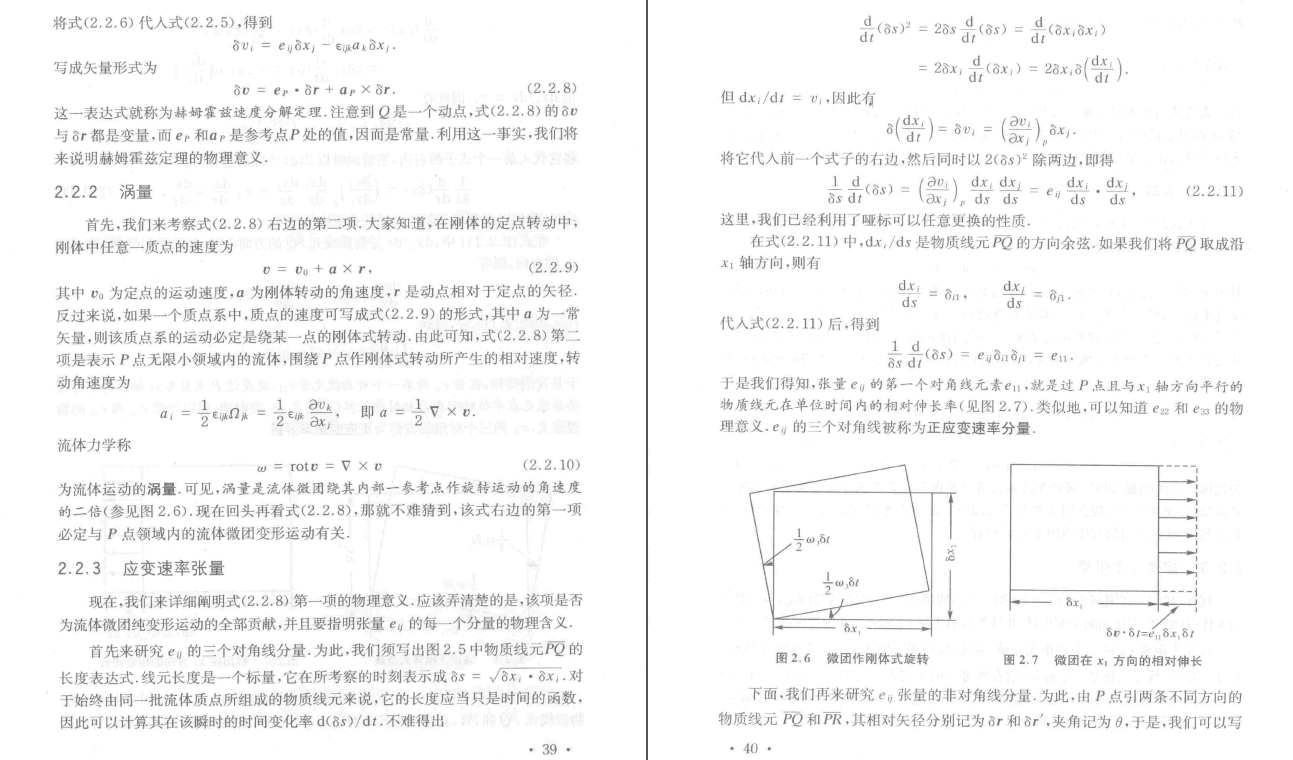 将式(2.2.6) 代入式(2.2.5),得到
δvᵢ = eᵢⱼδxⱼ − εᵢⱼₖaₖδxⱼ.
写成矢量形式为
δv = e_P · δr + a_P × δr. (2.2.8)
这一表达式就称为赫姆霍兹速度分解定理.注意到 Q 是一个动点,式(2.2.8) 的 δv
与 δr 都是变量,而 e_P 和 a_P 是参考点 P 处的值,因而是常量.利用这一事实,我们将
来说明赫姆霍兹定理的物理意义.
2.2.2 涡量
首先,我们来考察式(2.2.8) 右边的第二项.大家知道,在刚体的定点转动中,
刚体中任意一质点的速度为
v = v₀ + a × r, (2.2.9)
其中 v₀ 为定点的运动速度,a 为刚体转动的角速度,r 是动点相对于定点的矢径.
反过来说,如果一个质点系中,质点的速度可写成式(2.2.9) 的形式,其中 a 为一常
矢量,则该质点系的运动必定是绕某一点的刚体式转动.由此可知,式(2.2.8) 第二
项是表示 P 点无限小领域内的流体,围绕 P 点作刚体式转动所产生的相对速度,转
动角速度为
aᵢ = 1/2 εᵢⱼₖΩⱼₖ = 1/2 εᵢⱼₖ ∂vₖ/∂xⱼ, 即 a = 1/2 ∇ × v.
流体力学称
ω = rotv = ∇ × v (2.2.10)
为流体运动的涡量.可见,涡量是流体微团绕其内部一参考点作旋转运动的角速度
的二倍(参见图 2.6).现在回头再看式(2.2.8),那就不难猜到,该式右边的第一项
必定与 P 点领域内的流体微团变形运动有关.
2.2.3 应变速率张量
现在,我们来详细阐明式(2.2.8) 第一项的物理意义.应该弄清楚的是,该项是否
为流体微团纯变形运动的全部贡献,并且要指明张量 eᵢⱼ 的每一个分量的物理含义.
首先来研究 eᵢⱼ 的三个对角线分量.为此,我们须写出图 2.5 中物质线元 P̅Q̅ 的
长度表达式.线元长度是一个标量,它在所考察的时刻表示成 δs = √(δxᵢ · δxᵢ).对
于始终由同一批流体质点所组成的物质线元来说,它的长度应当只是时间的函数,
因此可以计算其在该瞬时的时间变化率 d(δs)/dt.不难得出
· 39 ·
d/dt (δs)² = 2δs d/dt (δs) = d/dt (δxᵢδxᵢ)
= 2δxᵢ d/dt (δxᵢ) = 2δxᵢδ(dxᵢ/dt).
但 dxᵢ/dt = vᵢ,因此有
δ(dxᵢ/dt) = δvᵢ = (∂vᵢ/∂xⱼ)ₚ δxⱼ.
将它代入前一个式子的右边,然后同时以 2(δs)² 除两边,即得
1/δs d/dt (δs) = (∂vᵢ/∂xⱼ)ₚ dxᵢ/ds dxⱼ/ds = eᵢⱼ dxᵢ/ds · dxⱼ/ds, (2.2.11)
这里,我们已经利用了哑标可以任意更换的性质.
在式(2.2.11) 中,dxᵢ/ds 是物质线元 P̅Q̅ 的方向余弦.如果我们将 P̅Q̅ 取成沿
x₁ 轴方向,则有
dxᵢ/ds = δᵢ₁, dxⱼ/ds = δⱼ₁.
代入式(2.2.11) 后,得到
1/δs d/dt (δs) = eᵢⱼδᵢ₁δⱼ₁ = e₁₁.
于是我们得知,张量 eᵢⱼ 的第一个对角线元素 e₁₁,就是过 P 点且与 x₁ 轴方向平行的
物质线元在单位时间内的相对伸长率(见图 2.7).类似地,可以知道 e₂₂ 和 e₃₃ 的物
理意义.eᵢⱼ 的三个对角线被称为正应变速率分量.
1/2 ω₃δt
1/2 ω₃δt
δx₂
δx₁
图 2.6 微团作刚体式旋转
δx₁
δv·δt=e₁₁δx₁δt
图 2.7 微团在 x₁ 方向的相对伸长
下面,我们再来研究 eᵢⱼ 张量的非对角线分量.为此,由 P 点引两条不同方向的
物质线元 P̅Q̅ 和 P̅R̅,其相对矢径分别记为 δr 和 δr′,夹角记为 θ,于是,我们可以写
· 40 ·